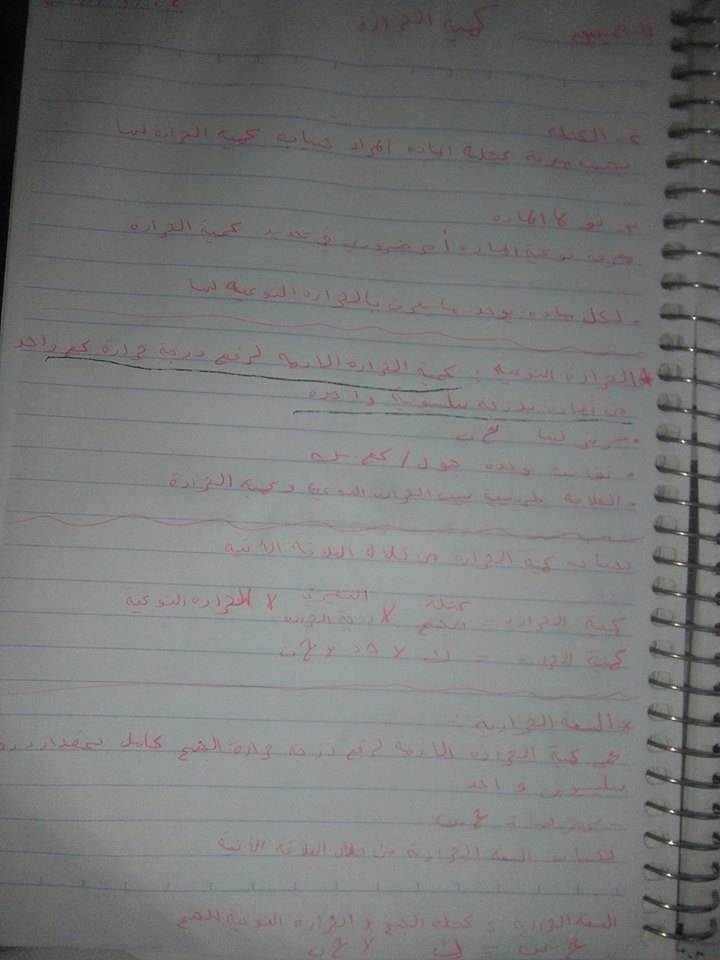 الخميس كمية الحراره
٢- الكتله
يجب معرفة كتلة الماده المراد حساب كمية الحراره لها
٣- نوع الماده
معرفة نوعية الماده أمر ضروري في تحديد كمية الحراره
- لكل ماده يوجد ما يعرف بالحراره النوعيه لها
* الحراره النوعيه : كمية الحراره الازمه لرفع درجة حرارة كجم واحد
من الماده بدرجة سليسيوية واحده
• يرمز لها حن
• تقاس بوحدة جول / كجم س
• العلاقه طرديه بين الحراره النوعيه وكمية الحرارة
لحساب كمية الحراره من خلال العلاقة الأتيه
كمية الحراره = كتلة الجسم × التغير في درجة الحراره × الحراره النوعية
كمية الحراره = ك × Δد × حن
* السعه الحرارية :-
هي كمية الحراره الازمه لرفع درجة حرارة الجسم كامل بمقدار درجه
سليسيوس واحد
- يرمز لها = حس
لحساب السعه الحرارية من خلال العلاقة الأتية
السعه الحراريه = كتلة الجسم × الحراره النوعية للجسم
حس = ك × حن